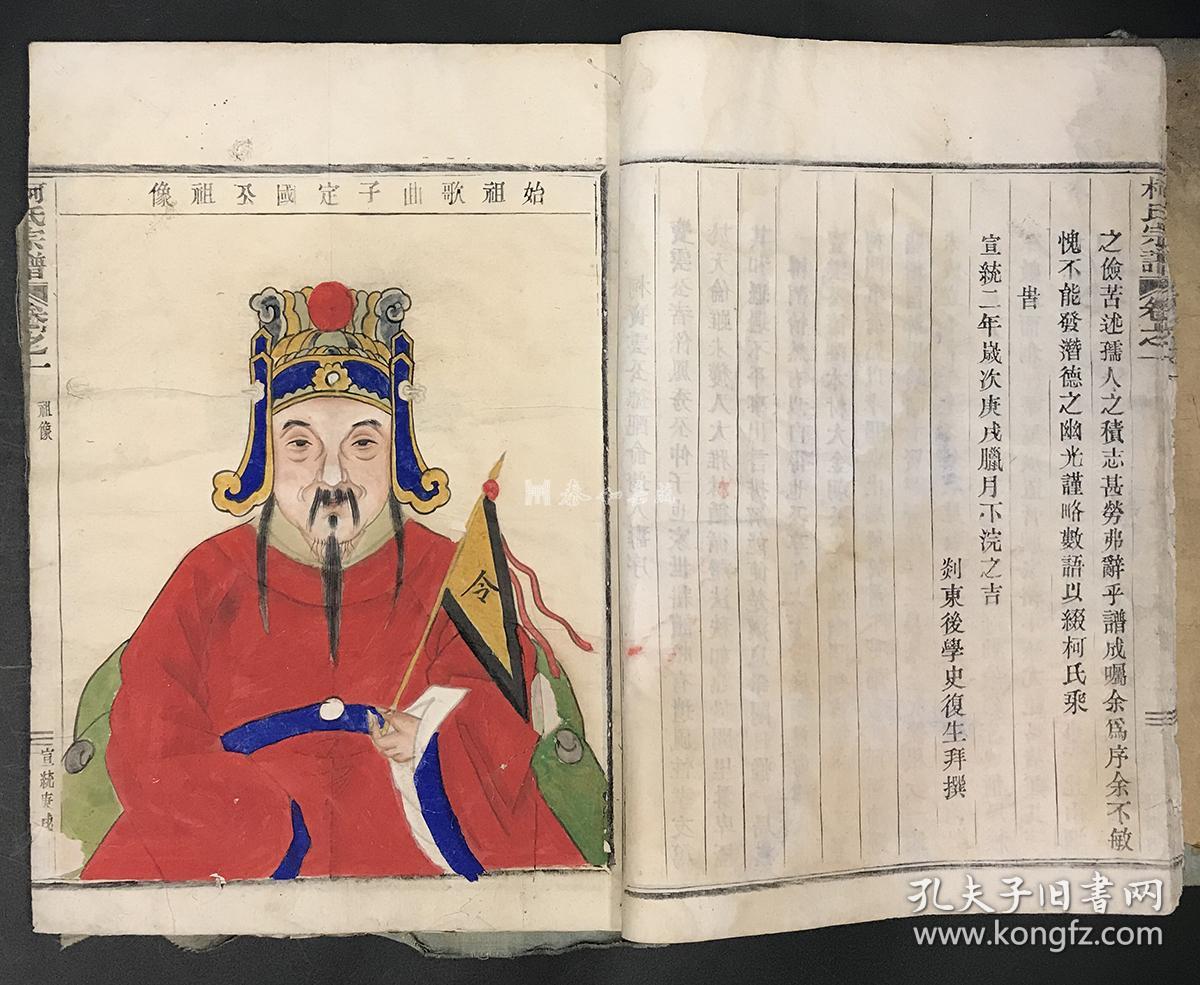 柯氏宗譜 卷之一
之儉苦述孺人之積志甚勞弗辭乎譜成囑余爲序余不敏
愧不能發潛德之幽光謹略數語以綴柯氏乘
旹
宣統二年歲次庚戌臘月下浣之吉
剡東後學史復生拜撰
始祖歌曲子定國公祖像
令
柯氏宗譜 卷之一 祖像 宣統庚戌
泰和嘉成
孔夫子旧书网
www.kongfz.com